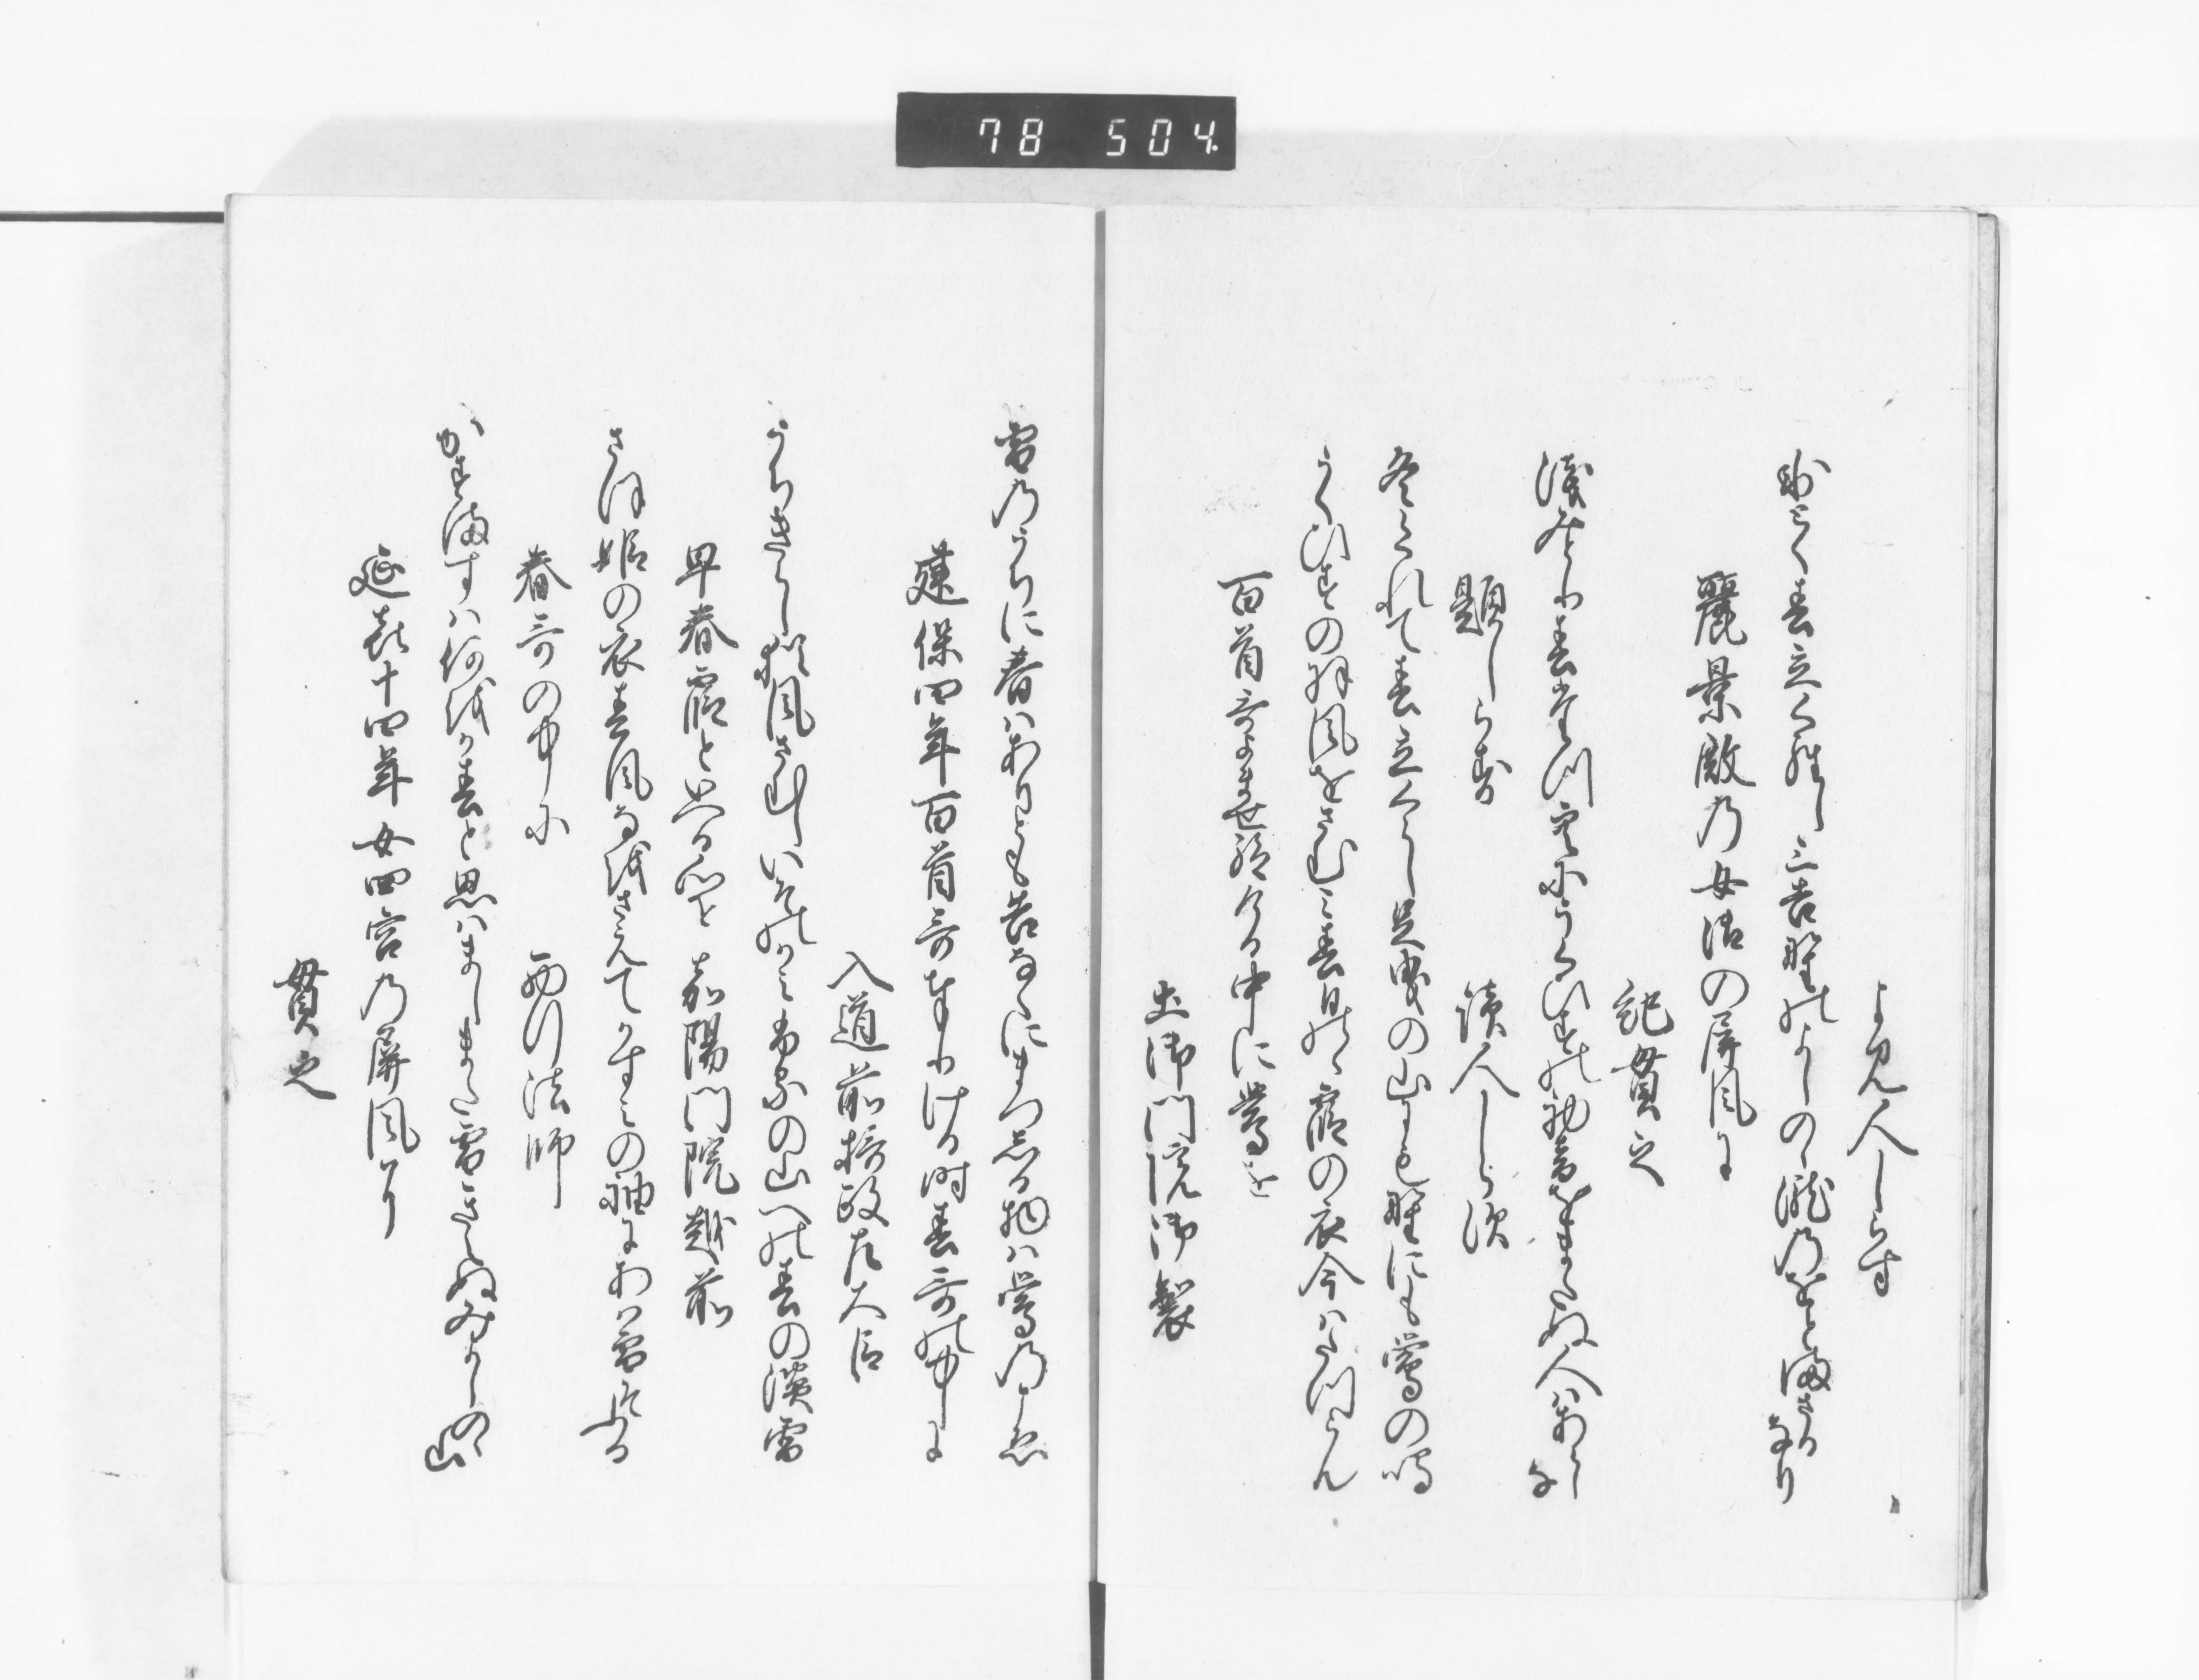 78 504.
よみ人しらす
めつらしく春立くらし三吉野のよしのゝ瀧乃をとまさるなり
麗景殿乃女御の屏風に
紀貫之
浅みとり春立つ空にうくひすの初音をまたぬ人はあらしな
題しらす
讀人しらす
冬くれて春立くらし足曳の山にも野にも鶯の鳴
うくひすの羽風をさむミ春日野ゝ霞の衣今はたつらん
百首哥よませ給ける中に鶯を
土御門院御製
雪乃うちに春はありとも告なくにまつしる物は鶯乃こゑ
建保四年百首哥奉りける時春哥の中に
入道前摂政左大臣
うちきらし猶風さむしいその神ふるの山への春の淡雪
早春霞といへる心を 嘉陽門院越前
さほ姫の衣春風なをさえてかすミの袖にあは雪そふる
春哥の中に 西行法師
かすますは何をか春と思はましまた雪きえぬみよしのゝ山
延喜十四年女四宮乃屏風に
貫之